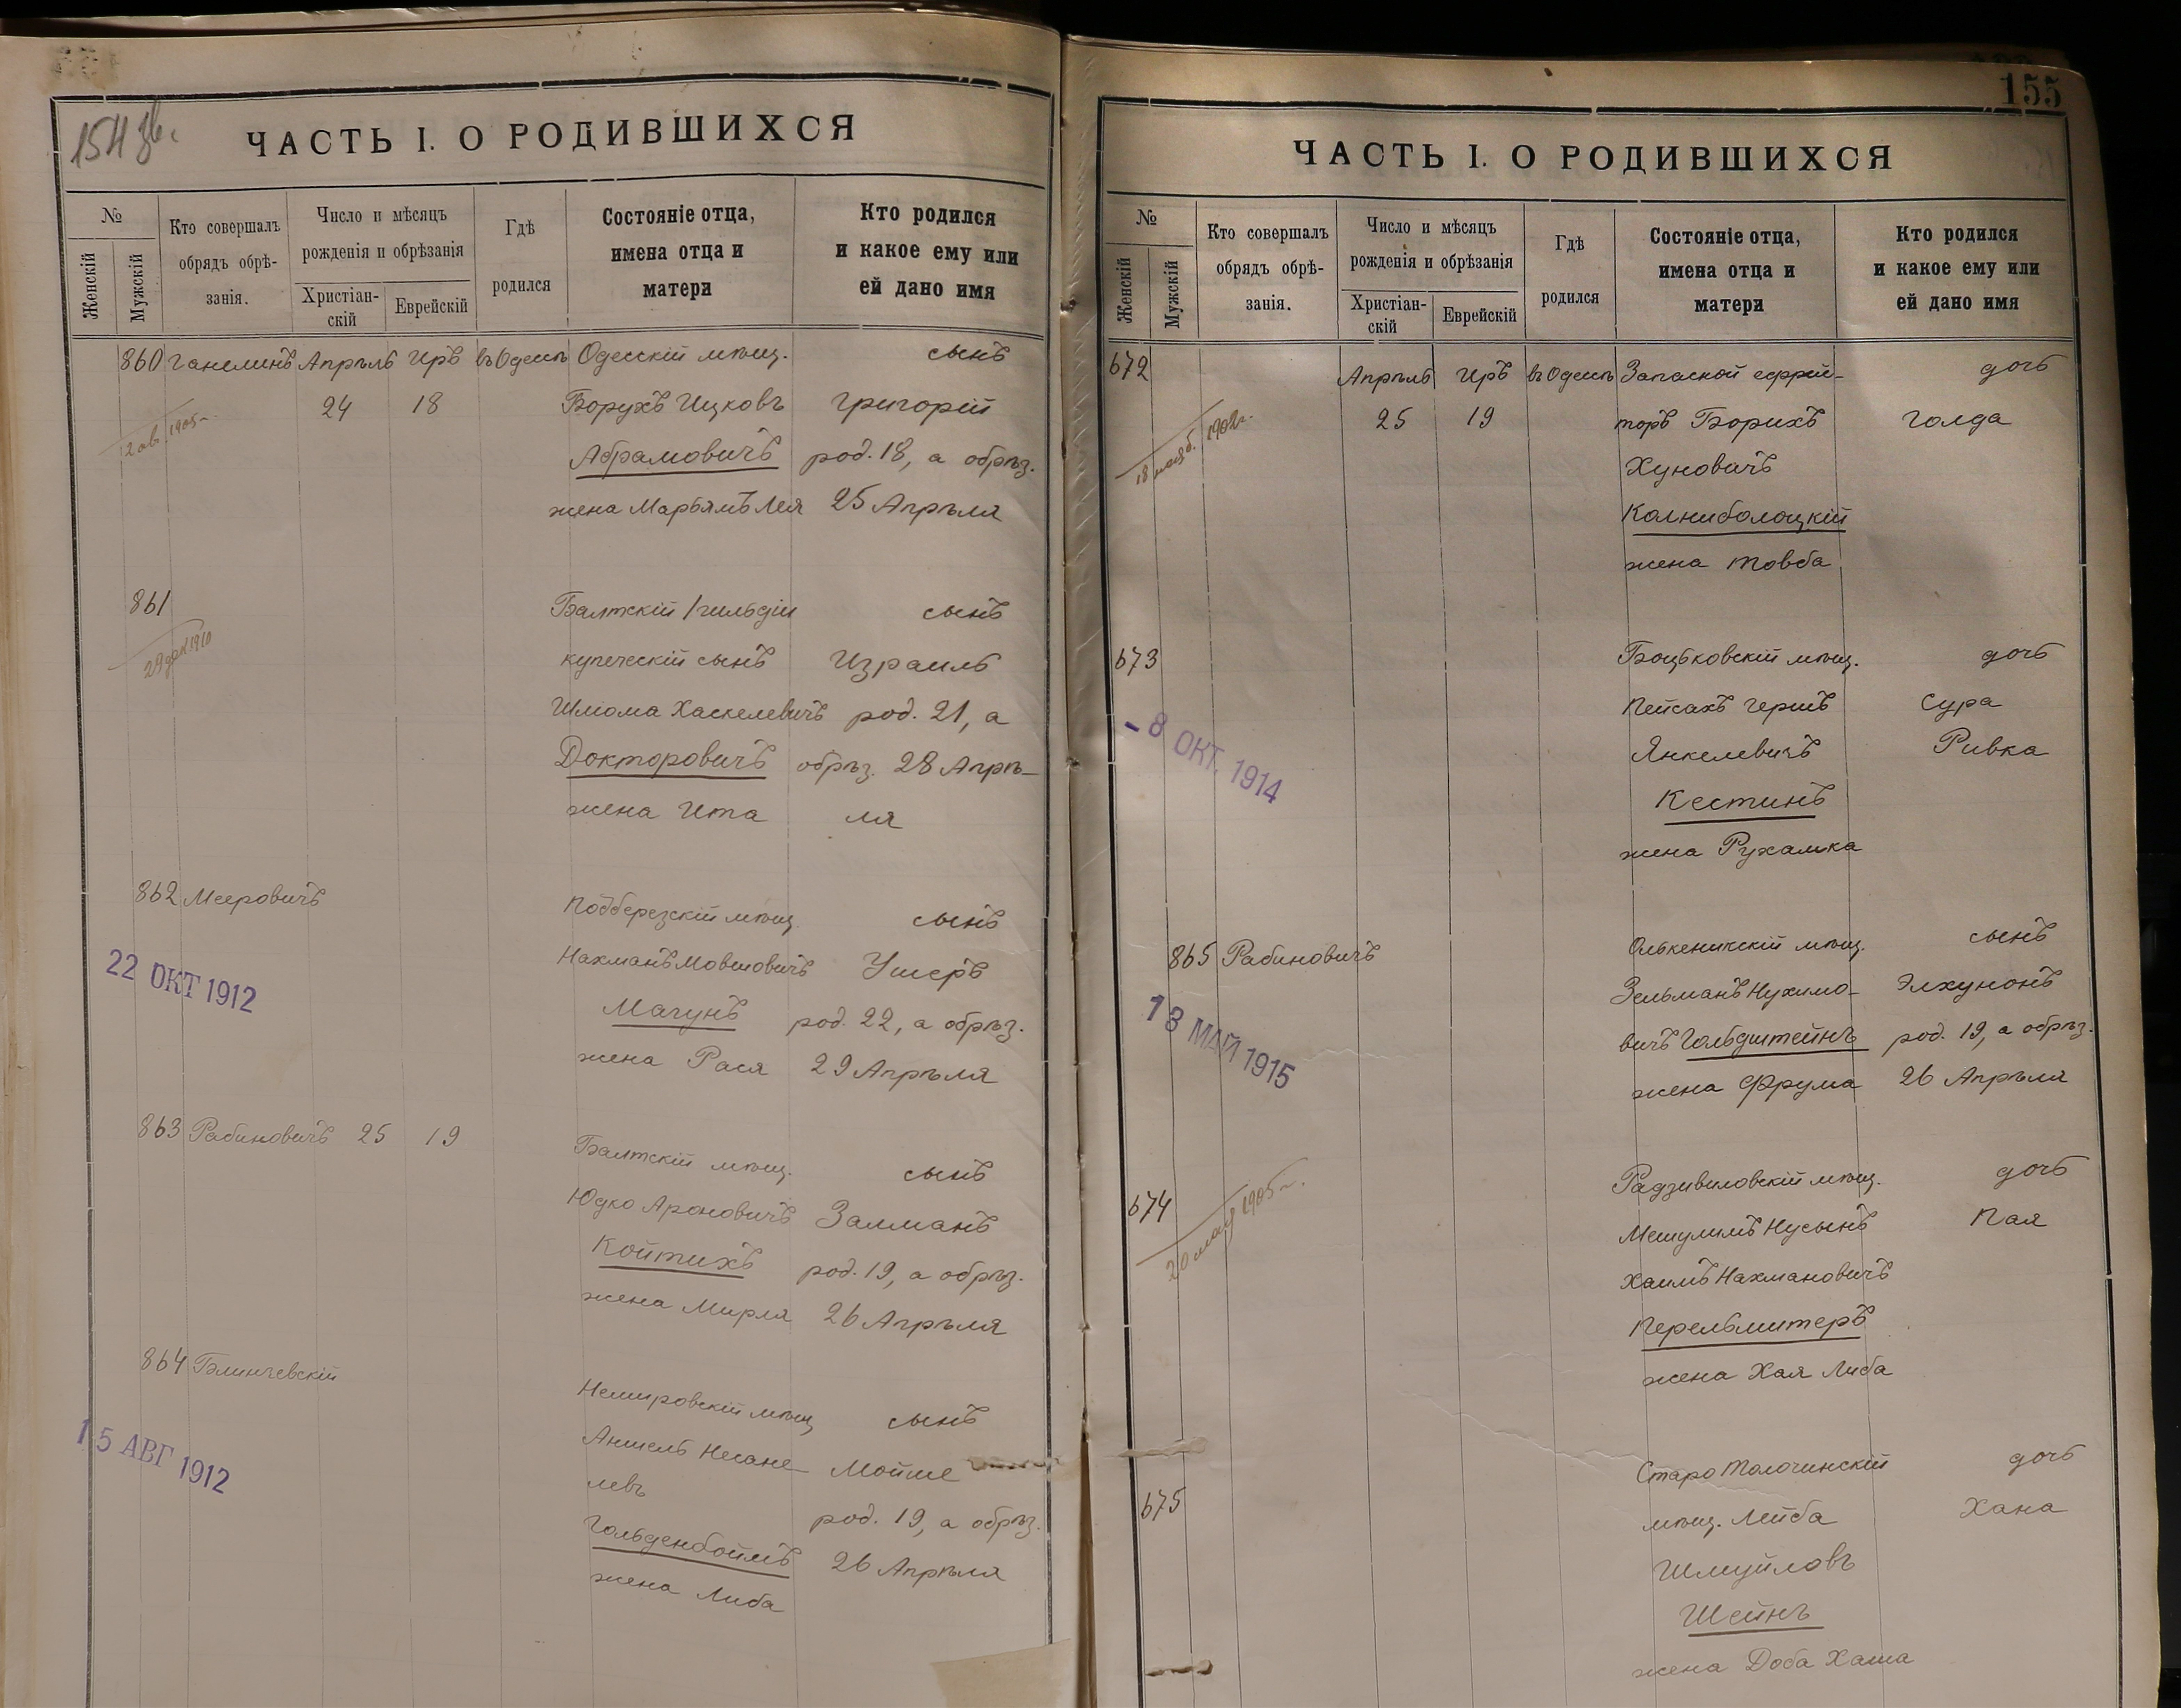 154 зв.
ЧАСТЬ I. О РОДИВШИХСЯ
№
Женскій
Мужскій
Кто совершалъ
обрядъ обрѣ-
занія.
Число и мѣсяцъ
рожденія и обрѣзанія
Христіан-
скій
Еврейскій
Гдѣ
родился
Состояніе отца,
имена отца и
матери
Кто родился
и какое ему или
ей дано имя
860 Ганелинъ Апрѣль Иръ въ Одессѣ Одесскій мѣщ. сынъ
24 18 Борухъ Ицковъ Григорій
Абрамовичъ род. 18, а обрѣз.
жена Марьямъ Лея 25 Апрѣля
2 ав. 1905 г.
861 Балтскій 1 гильдіи сынъ
купеческій сынъ Израиль
Шлиома Хаскелевичъ род. 21, а
Докторовичъ обрѣз. 28 Апрѣ-
жена Ита ля
29 дек 1910
862 Мееровичъ Подберезскій мѣщ. сынъ
Нахманъ Мовшовичъ Ушеръ
Магунъ род. 22, а обрѣз.
жена Рася 29 Апрѣля
22 ОКТ 1912
863 Рабиновичъ 25 19 Балтскій мѣщ. сынъ
Юдко Ароновичъ Залманъ
Койтихъ род. 19, а обрѣз.
жена Мирля 26 Апрѣля
864 Блинчевскій Немировскій мѣщ. сынъ
Аншель Несане- Мойше
левъ род. 19, а обрѣз.
Гольденбоймъ 26 Апрѣля
жена Либа
15 АВГ 1912
155
ЧАСТЬ I. О РОДИВШИХСЯ
№
Женскій
Мужскій
Кто совершалъ
обрядъ обрѣ-
занія.
Число и мѣсяцъ
рожденія и обрѣзанія
Христіан-
скій
Еврейскій
Гдѣ
родился
Состояніе отца,
имена отца и
матери
Кто родился
и какое ему или
ей дано имя
672 Апрѣль Иръ въ Одессѣ Запасной ефрей- дочь
25 19 торъ Борихъ Голда
Хуновичъ
Колниболоцкій
жена Товба
18 нояб. 1902 г.
673 Боцьковскій мѣщ. дочь
Пейсахъ Гершъ Сура
Янкелевичъ Ривка
Кестинъ
жена Рухамка
- 8 ОКТ. 1914
865 Рабиновичъ Олькеникскій мѣщ. сынъ
Зельманъ Нухимо- Элхунонъ
вичъ Гольдштейнъ род. 19, а обрѣз.
жена Фрума 26 Апрѣля
13 МАЙ 1915
674 Радзивиловскій мѣщ. дочь
Мешулимъ Нусынъ Пая
Хаимъ Нахмановичъ
Перельмитеръ
жена Хая Либа
20 мая 1905 г.
675 Старо Толочинскій дочь
мѣщ. Лейба Хана
Шмуйловъ
Шейнъ
жена Доба Хаша